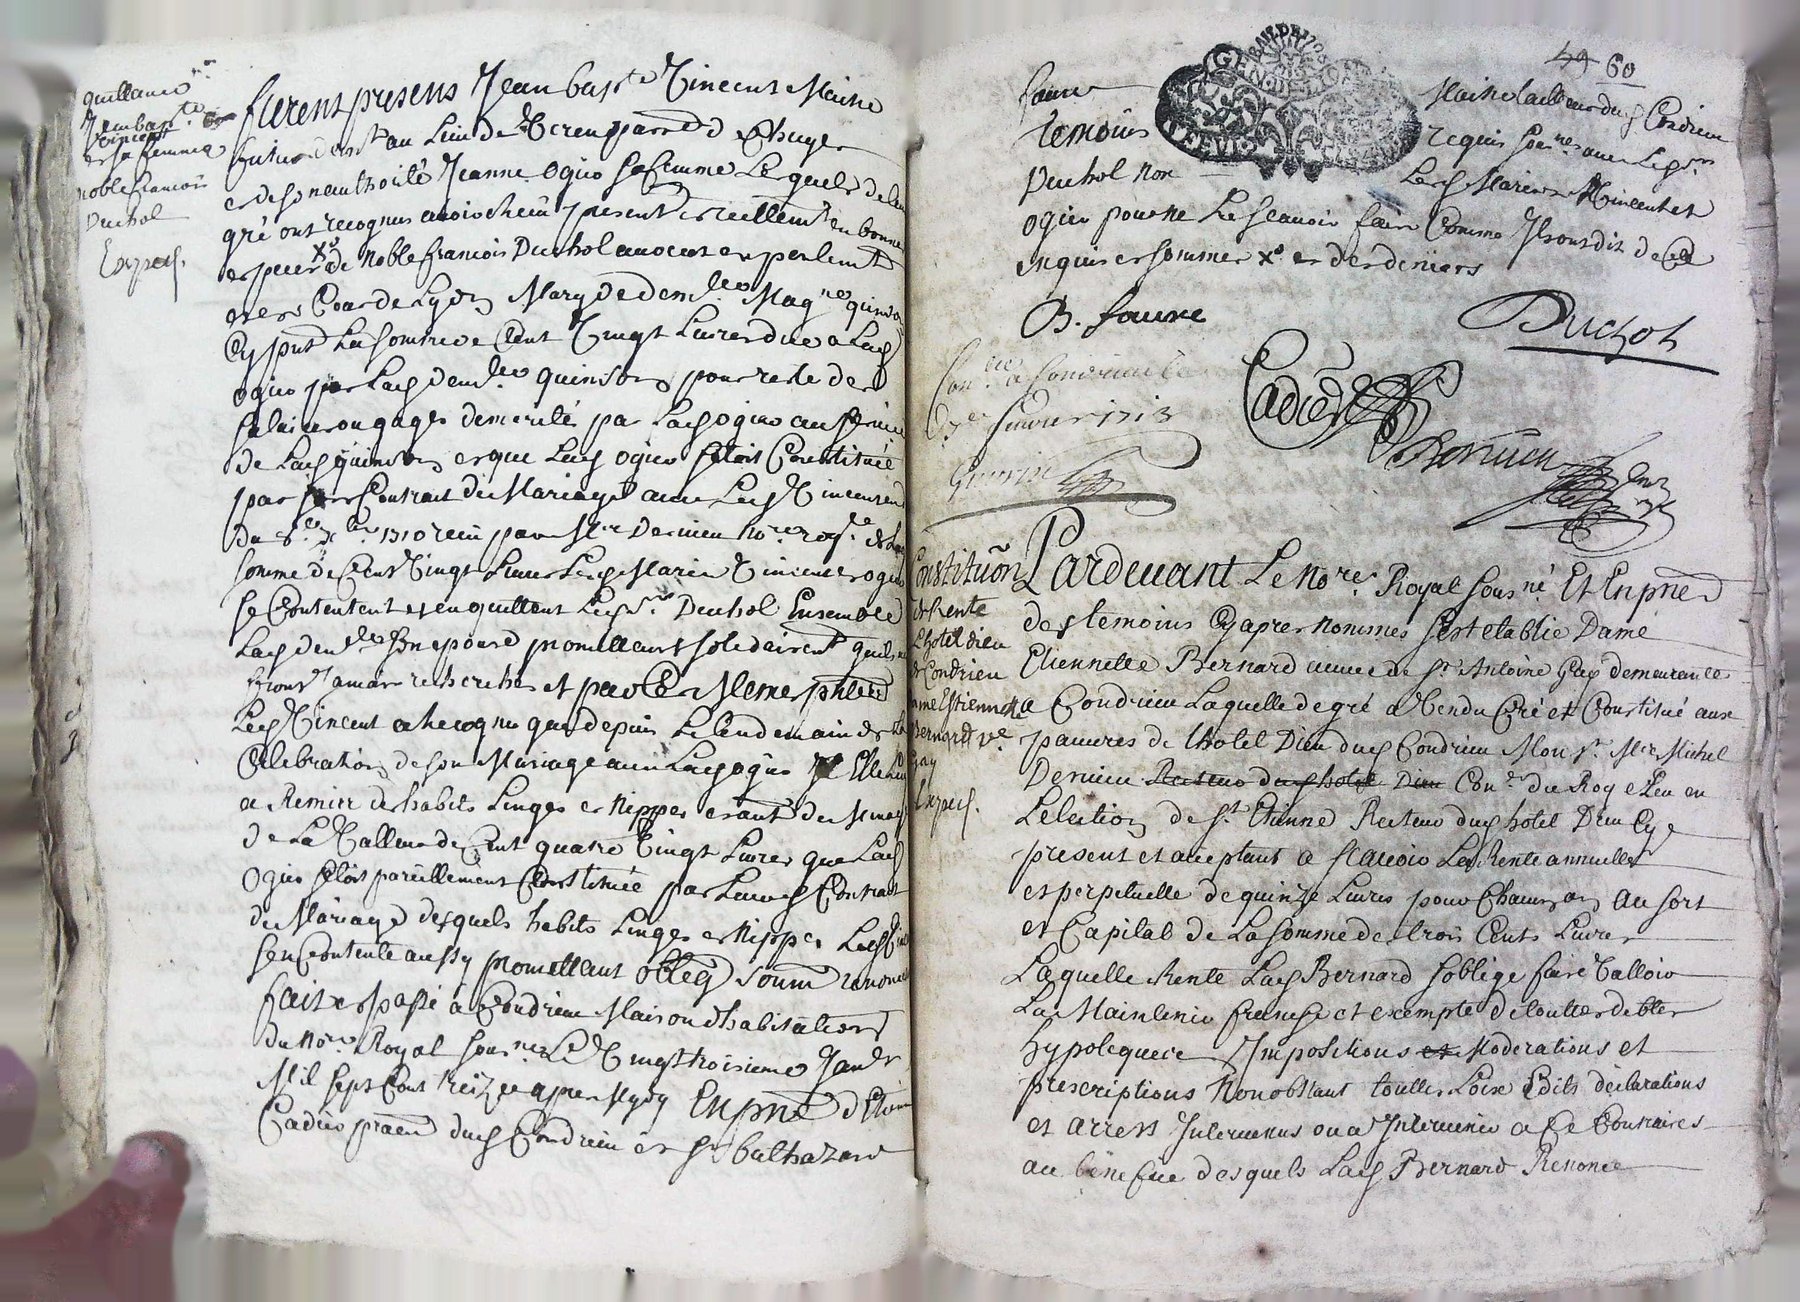 quittance
Jean bap.te
Vincent
et sa femme
noble francois
Duchol
Exped.
furent presens Jean bap.te Vincent Maitre
au Lieu de Verenay par.sse d
et de son authorité Jeanne ogier sa femme Lesquels de leur
gré ont recognu avoir heu presentet reellem.t en bonne
et de Noble francois Duchol avocat en parlem.t
et es Cours de Lyon Mary de dem.lle Mag.ne quinson
Cy pnt La somme de Cent Vingt Livres due a Lad
ogier par Lad dem.lle quinson pour reste de
salaires ou gages demerités par Lad ogier au service
de Lad quinson et que Lad ogier setoit Constituée
par son Contrat de Mariage avec Led Vincent
du 8.e 1710 receu par M.re Dernieu No.re roy.l de La
somme de Cent Vingt Livres Lesd Mariés Vincent et ogier
se Contentent et en quittent Led s.r Duchol Ensemble
Lad dem.lle son epouse promettant solidairem.t quils ne
seront Jamais recherchés et par Ces Memes pntes
Led Vincent a recognu que depuis Le lendemain de La
Celebration de son Mariage avec Lad ogier Elle Luy
a Remis des habits Linges et Nippes
de La Valleur de Cent quatre Vingt Livres que Lad
Ogier setoit pareillement Constituée par Leurd Contrat
de Mariage desquels habits Linges et Nippes Led
sen Contente aussy promettant oblig soum renon
fait et passé à Condrieu Maison d'habitation
du No.re Royal sous.né Le Vingt troisieme Janv.r
Mil sept Cent treize apres Midy En pnce d'Etienne
Cadier dud Condrieu et s.r balthazard
49 60
GEN DE
faure Maitre tailleur dud Condrieu
temoins requis sous.nes avec Led s.r
Duchol non Lesd Mariés Vincent et
ogier pour ne Le scavoir faire Comme Ils ont dit de Ce
enquis et sommés
B. faure
Duchol
Con.lle a Condrieu le
fevrier 1713
Cadier
Dernieu
Constitution
de Rente
L'hotel dieu
de Condrieu
Dame Estiennette
Bernard v.e
Gay
Exped.
Pardevant Le No.re Royal sous.né Et En pnce
des temoins Cy apres Nommes sest etablie Dame
Etiennette Bernard veuve de s.r Antoine Gay demeurante
a Condrieu Laquelle de gré a Vendu Créé et Constitué aux
pauvres de l'hotel Dieu dud Condrieu Mon s.r M.re Michel
Dernieu Recteur dud hotel Dieu Con.r du Roy Eleu en
Lelection de s.t Etienne Recteur dud hotel Dieu Cy
present et aceptant a scavoir La Rente annuelle
et perpetuelle de quinze Livres pour Chacun an au sort
et Capital de La somme de trois Cents Livres
Laquelle Rente Lad Bernard soblige faire Valloir
La Maintenir franche et exempte de touttes debtes
hypoteques Impositions et Moderations et
prescriptions Nonobstant touttes Loix Edits declarations
et arrets Intervenus ou a Intervenir a Ce Contraires
au benefice desquels Lad Bernard Renonce